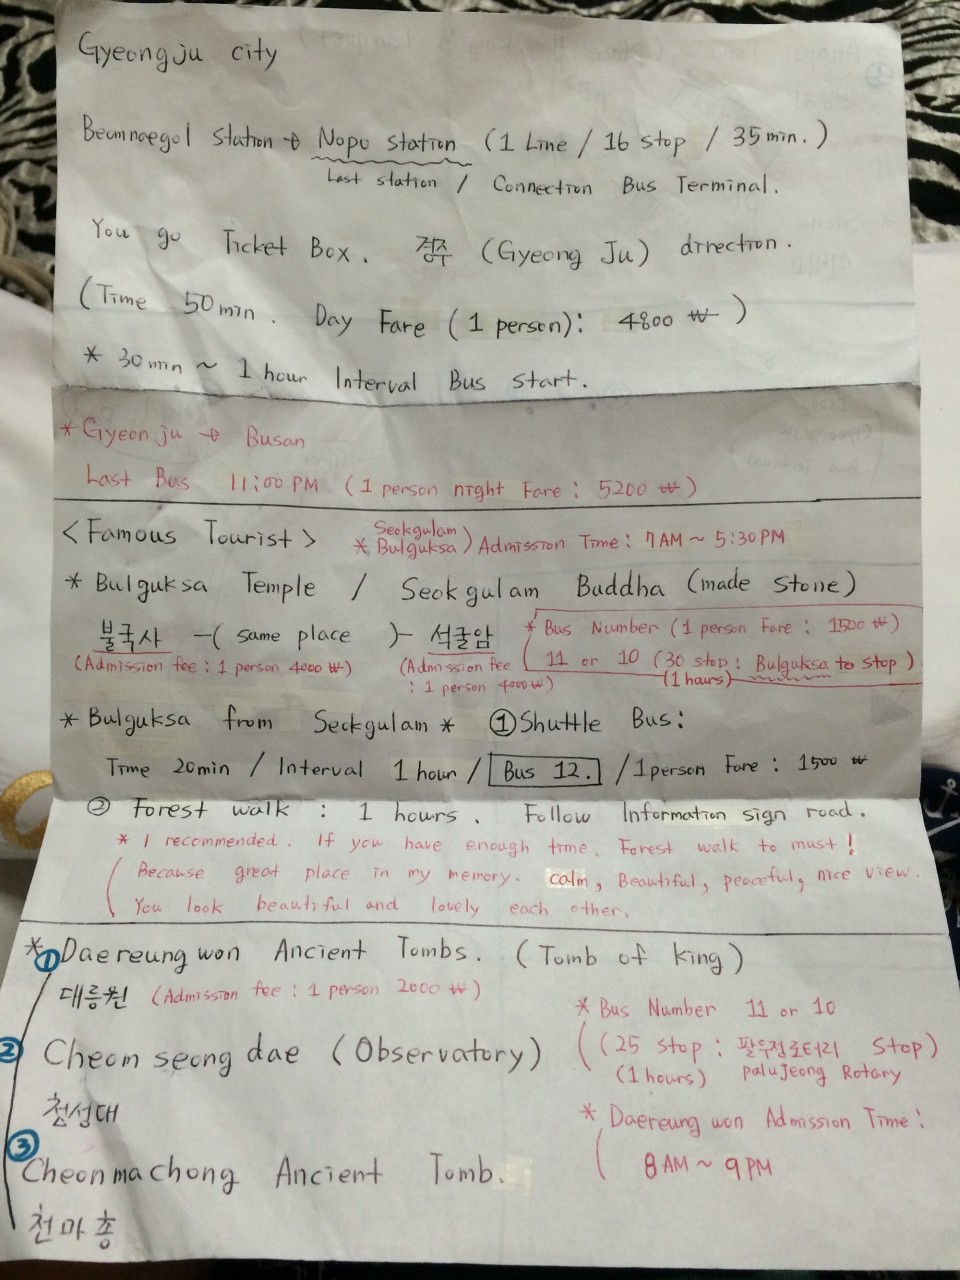 Gyeongju city
Beomnaegol station → Nopo station (1 Line / 16 stop / 35 min.)
Last station / Connection Bus Terminal.
You go Ticket Box. 경주 (Gyeong Ju) direction.
(Time 50min. Day Fare (1 person): 4800 ₩)
* 30min ~ 1 hour Interval Bus start.
* Gyeonju → Busan
Last Bus 11:00 PM (1 person night Fare: 5200 ₩)
<Famous Tourist> * Seokgulam Bulguksa) Admission Time: 7AM ~ 5:30PM
* Bulguksa Temple / Seokgulam Buddha (made stone)
불국사 -( same place )- 석굴암
(Admission fee: 1 person 4000 ₩) (Admission fee : 1 person 4000 ₩)
* Bus Number (1 person Fare: 1500 ₩)
11 or 10 (30 stop: Bulguksa to stop)
(1 hours)
* Bulguksa from Seokgulam * ① Shuttle Bus:
Time 20min / Interval 1 hour / Bus 12. / 1person Fare: 1500 ₩
② Forest walk : 1 hours. Follow Information sign road.
* I recommended. If you have enough time. Forest walk to must!
Because great place in my memory. calm, Beautiful, peaceful, nice view.
You look beautiful and lovely each other.
* ① Daereungwon Ancient Tombs. (Tomb of king)
대릉원 (Admission fee: 1 person 2000 ₩)
② Cheomseongdae (Observatory)
첨성대
③ Cheonmachong Ancient Tomb.
천마총
* Bus Number 11 or 10
(25 stop: 팔우정로터리 stop)
(1 hours) palujeong Rotary
* Daereungwon Admission Time:
8AM ~ 9PM